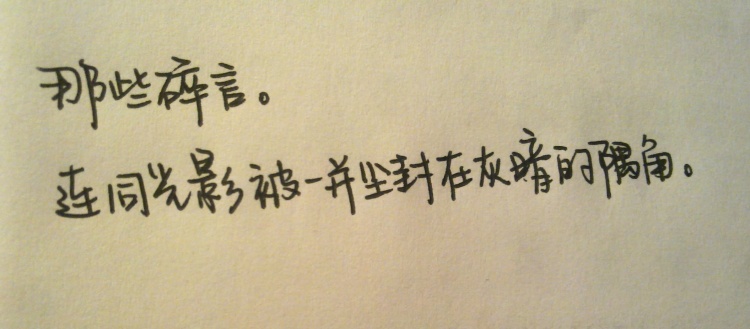 那些碎言。
连同光影被一并尘封在灰暗的隅角。